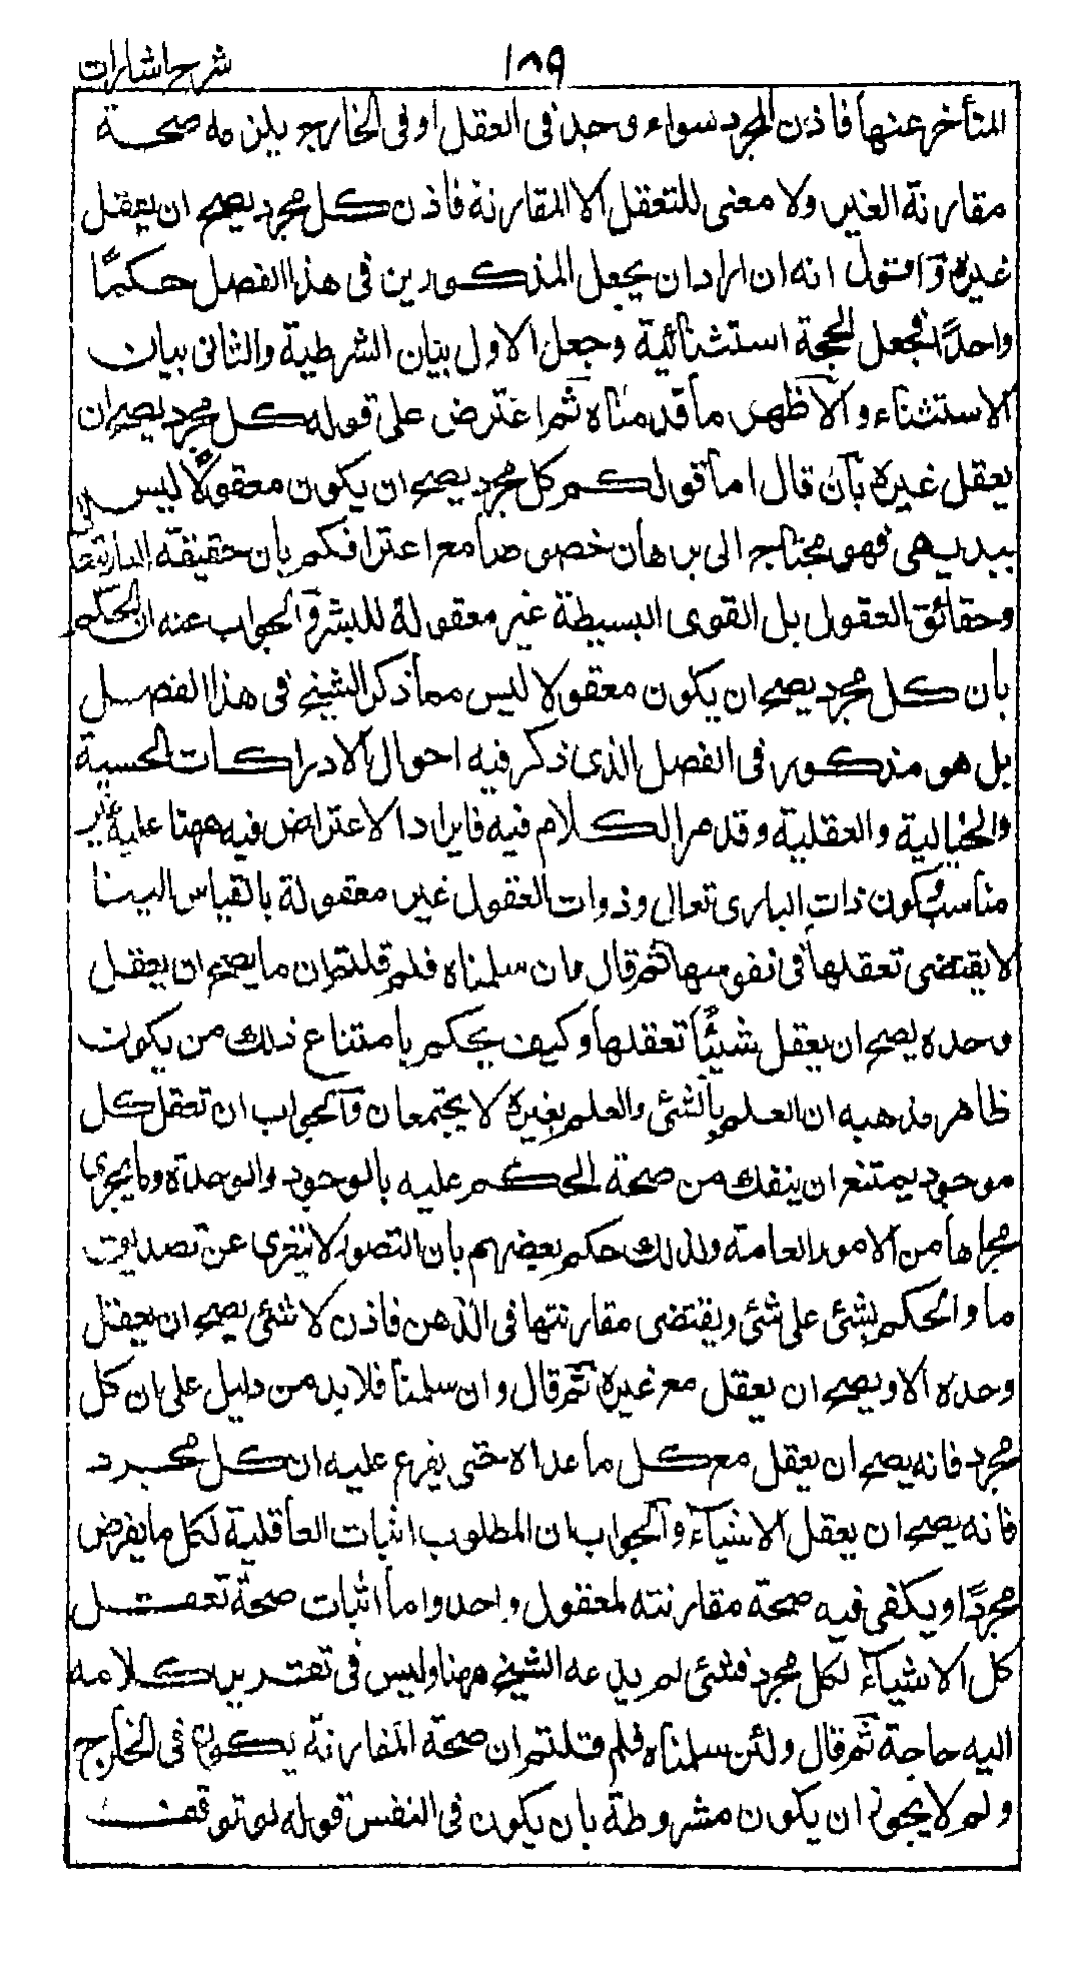 شرح اشارات
١٨٩
المتأخر عنها فاذن المجرد سواء وجد فى العقل او فى الخارج يلزمه صحة
مقارنة الغير ولا معنى للتعقل الا المقارنة فاذن كل مجرد يصح ان يعقل
غيره وَاقول انه ان اراد ان يجعل المذكورين فى هذا الفصل حكمًا
واحدًا فجعل الحجة استثنائية وجعل الاول بيان الشرطية والثانى بيان
الاستثناء والآظهر ما قدمناه ثم اعترض على قوله كل مجرد يصح ان
يعقل غيره بأن قال اما قولكم كل مجرد يصح ان يكون معقولًا ليس
ببديهى فهو محتاج الى برهان خصوصا مع اعترافكم بان حقيقة البارى تعالى
وحقائق العقول بل القوى البسيطة غير معقولة للبشر وَالجواب عنه ان الحكم
بان كل مجرد يصح ان يكون معقولا ليس مما ذكر الشيخ فى هذا الفصل
بل هو مذكور فى الفصل الذى ذكر فيه احوال الادراكات الحسية
والخيالية والعقلية وقد مر الكلام فيه فايراد الاعتراض فيه ههنا عليه غير
مناسب وكون ذات البارى تعالى وذوات العقول غير معقولة بالقياس الينا
لا يقتضى تعقلها فى نفوسها ثم قال وان سلمناه فلم قلتم ان ما يصح ان يعقل
وحده يصح ان يعقل شيئًا تعقلها وكيف يحكم بامتناع ذلك من يكون
ظاهر مذهبه ان العلم بالشئ والعلم بغيره لا يجتمعان وَالجواب ان تعقل كل
موجود يمتنع ان ينفك من صحة الحكم عليه بالوجود والوحدة وما يجرى
مجراها من الامور العامة ولذلك حكم بعضهم بان التصور لا تتعرى عن تصديق
ما والحكم بشئ على شئ ويقتضى مقارنتها فى الذهن فاذن لا شئ يصح ان يعقل
وحده الا ويصح ان يعقل مع غيره ثم قال وان سلمنا فلا بد من دليل على ان كل
مجرد فانه يصح ان يعقل مع كل ما عداه حتى يفرع عليه ان كل مجرد
فانه يصح ان يعقل الاشياء وَالجواب ان المطلوب اثبات العاقلية لكل ما يفرض
مجردًا ويكفى فيه صحة مقارنته لمعقول واحد واما اثبات صحة تعقل
كل الاشياء لكل مجرد فشئ لم يدعه الشيخ ههنا وليس فى تقرير كلامه
اليه حاجة ثم قال ولئن سلمناه فلم قلتم ان صحة المقارنة يكون فى الخارج
ولم لا يجوز ان يكون مشروطة بان يكون فى النفس قوله لو توقفت